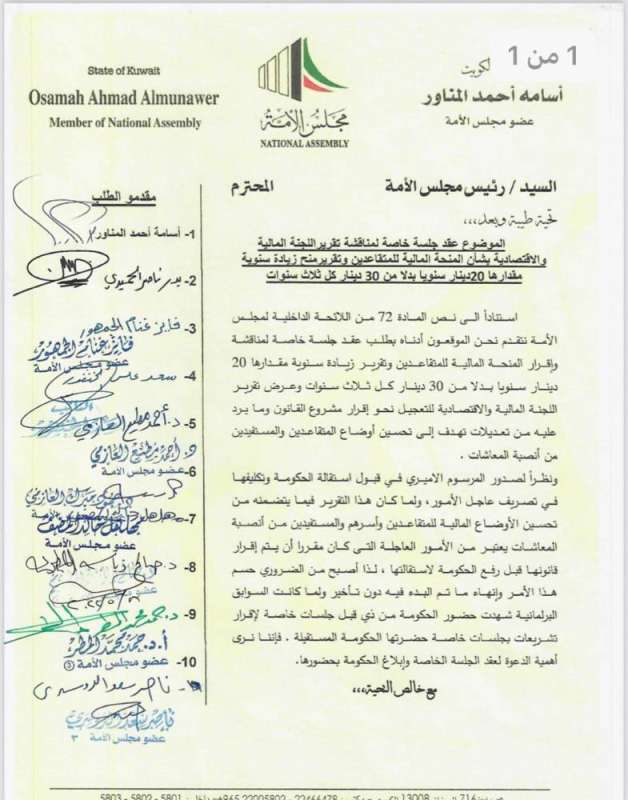 1 من 1
State of Kuwait
Osamah Ahmad Almunawer
Member of National Assembly
مجلس الأمة
NATIONAL ASSEMBLY
لكويت
أسامه أحمد المناور
عضو مجلس الأمة
السيد / رئيس مجلس الأمة المحترم
تحية طيبة وبعد،،،
الموضوع عقد جلسة خاصة لمناقشة تقرير اللجنة المالية
والاقتصادية بشأن المنحة المالية للمتقاعدين وتقرير منح زيادة سنوية
مقدارها 20 دينار سنويا بدلا من 30 دينار كل ثلاث سنوات
استناداً الى نص المادة 72 من اللائحة الداخلية لمجلس
الأمة نتقدم نحن الموقعون أدناه بطلب عقد جلسة خاصة لمناقشة
وإقرار المنحة المالية للمتقاعدين وتقرير زيادة سنوية مقدارها 20
دينار سنويا بدلا من 30 دينار كل ثلاث سنوات وعرض تقرير
اللجنة المالية والاقتصادية للتعجيل نحو إقرار مشروع القانون وما يرد
عليه من تعديلات تهدف إلى تحسين أوضاع المتقاعدين والمستفيدين
من أنصبة المعاشات .
ونظراً لصدور المرسوم الاميري في قبول استقالة الحكومة وتكليفها
في تصريف عاجل الأمور ، ولما كان هذا التقرير فيما يتضمنه من
تحسين الأوضاع المالية للمتقاعدين وأسرهم والمستفيدين من أنصبة
المعاشات يعتبر من الأمور العاجلة التى كان مقررا أن يتم إقرار
قانونها قبل رفع الحكومة لاستقالتها ، لذا أصبح من الضروري حسم
هذا الأمر وإنهاء ما تم البدء فيه دون تأخير ولما كانت السوابق
البرلمانية شهدت حضور الحكومة من ذي قبل جلسات خاصة لإقرار
تشريعات بجلسات خاصة حضرتها الحكومة المستقيلة . فإننا نرى
أهمية الدعوة لعقد الجلسة الخاصة وإبلاغ الحكومة بحضورها.
مع خالص التحية،،،
مقدمو الطلب
1- أسامة أحمد المناور
2- بدر ناصر الحميدي
3- فايز غنام الجمهور
فايز غنام الجمهور
عضو مجلس الأمة
4- سعد علي
5- د. أحمد مطيع العازمي
د. أحمد مطيع العازمي
6- عضو مجلس الأمة
7- مهلهل خالد المضف
مهلهل خالد المضف
عضو مجلس الأمة
8- د.
9- د. حمد محمد المطر
أ.د. حمد محمد المطر
10- عضو مجلس الأمة
ناصر سعد الدوسري
عضو مجلس الأمة